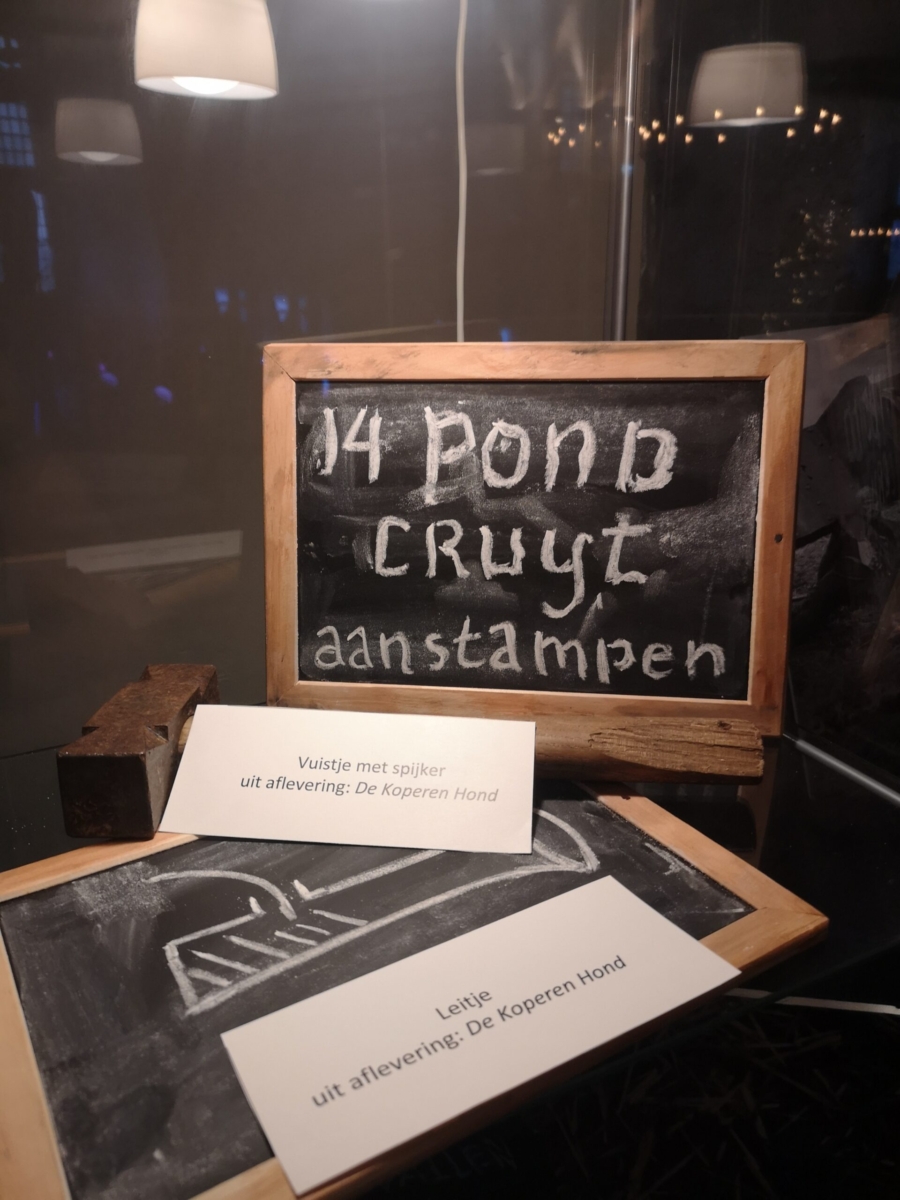 14 POND
CRUYT
aanstampen
Vuistje met spijker
uit aflevering: De Koperen Hond
Leitje
uit aflevering: De Koperen Hond